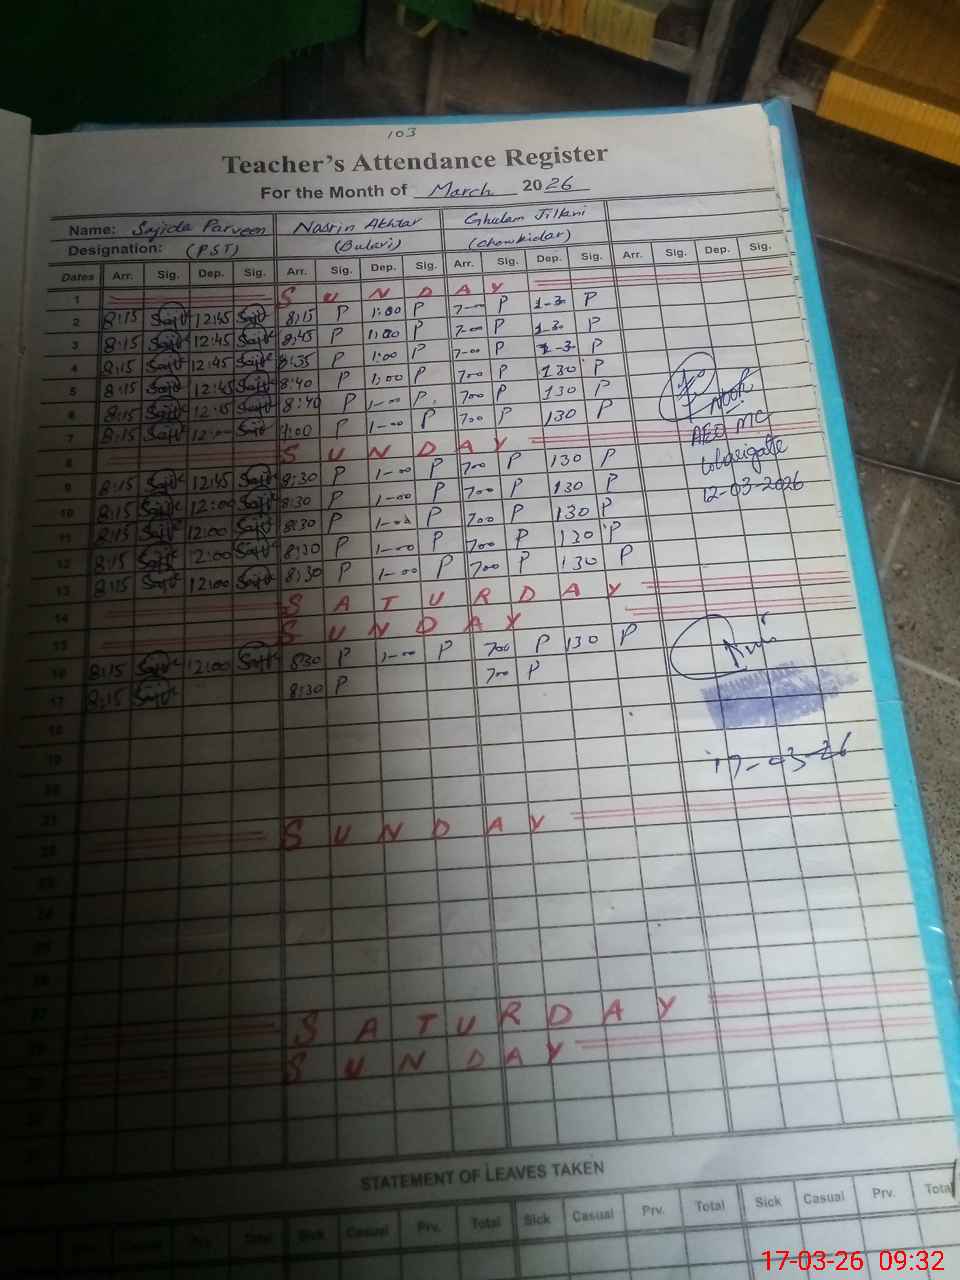 103
Teacher's Attendance Register
For the Month of March 2026
Name: Sajida Parveen Nasrin Akhtar Ghulam Jilani
Designation: (PST) (Bulari) (Chowkidar)
Dates Arr. Sig. Dep. Sig. Arr. Sig. Dep. Sig. Arr. Sig. Dep. Sig. Arr. Sig. Dep. Sig.
1 S U N D A Y
2 8:15 Sajid 12:45 Sajid 8:15 P 1:00 P 7-00 P 1-30 P
3 8:15 Sajid 12:45 Sajid 8:45 P 1:00 P 7-00 P 1-30 P
4 8:15 Sajid 12:45 Sajid 8:35 P 1:00 P 7-00 P 1-30 P
5 8:15 Sajid 12:45 Sajid 8:40 P 1:00 P 700 P 130 P
6 8:15 Sajid 12:45 Sajid 8:40 P 1-00 P 700 P 130 P
7 8:15 Sajid 12:00 Sajid P 1-00 P 700 P 130 P
8 S U N D A Y
9 8:15 Sajid 12:45 Sajid 8:30 P 1-00 P 700 P 130 P
10 8:15 Sajid 12:00 Sajid 8:30 P 1-00 P 700 P 130 P
11 8:15 Sajid 12:00 Sajid 8:30 P 1-00 P 700 P 130 P
12 8:15 Sajid 12:00 Sajid 8:30 P 1-00 P 700 P 130 P
13 8:15 Sajid 12:00 Sajid 8:30 P 1-00 P 700 P 130 P
14 S A T U R D A Y
15 S U N D A Y
16 8:15 Sajid 12:00 Sajid 8:30 P 1-00 P 700 P 130 P
17 8:15 Sajid 8:30 P 700 P
18
19
20
21
22 S U N D A Y
23
24
25
26
27
28 S A T U R D A Y
S U N D A Y
AEO MC
12-03-2026
17-03-26
STATEMENT OF LEAVES TAKEN
Sick Casual Prv. Total Sick Casual Prv. Total Sick Casual Prv. Total Sick Casual Prv. Total
17-03-26 09:32